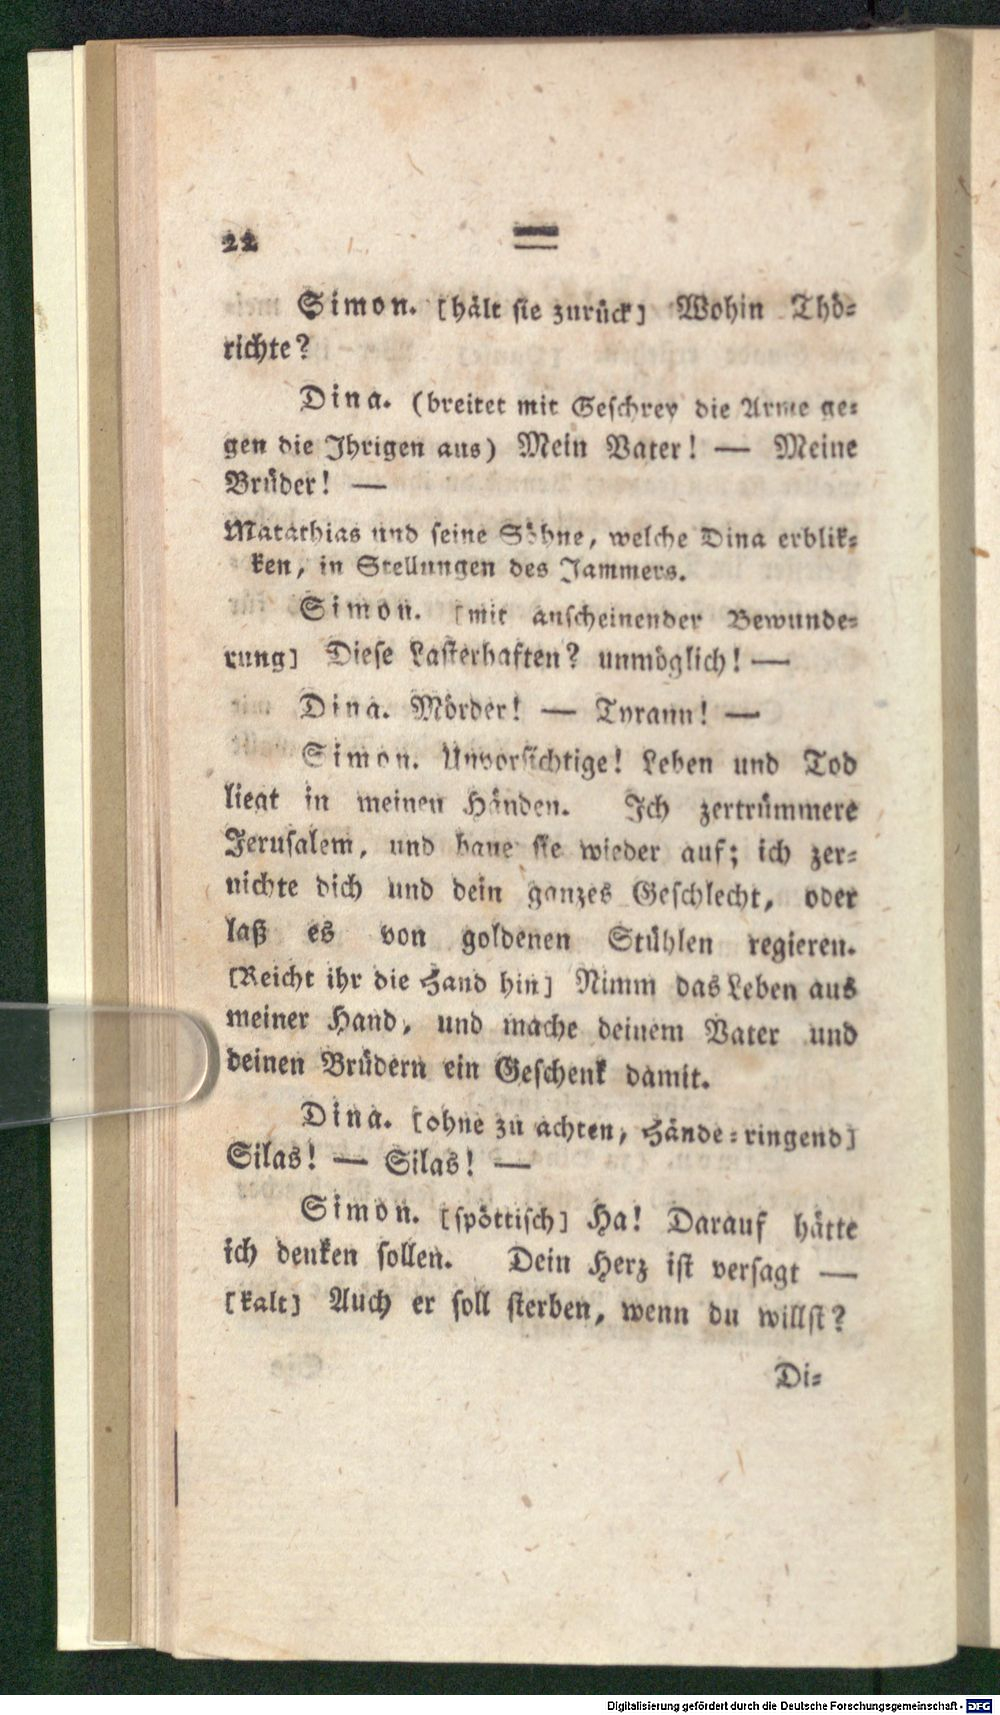 22
Simon. [hält sie zurück] Wohin Thö-
richte?
Dina. (breitet mit Geschrey die Arme ge-
gen die Ihrigen aus) Mein Vater! — Meine
Brüder! —
Matathias und seine Söhne, welche Dina erblik-
ken, in Stellungen des Jammers.
Simon. [mit anscheinender Bewunde-
rung] Diese Lasterhaften? unmöglich! —
Dina. Mörder! — Tyrann! —
Simon. Unvorsichtige! Leben und Tod
liegt in meinen Händen. Ich zertrümmere
Jerusalem, und baue sie wieder auf; ich zer-
nichte dich und dein ganzes Geschlecht, oder
laß es von goldenen Stühlen regieren.
[Reicht ihr die Hand hin] Nimm das Leben aus
meiner Hand, und mache deinem Vater und
deinen Brüdern ein Geschenk damit.
Dina. [ohne zu achten, Hände-ringend]
Silas! — Silas! —
Simon. [spöttisch] Ha! Darauf hätte
ich denken sollen. Dein Herz ist versagt —
[kalt] Auch er soll sterben, wenn du willst?
Di-
Digitalisierung gefördert durch die Deutsche Forschungsgemeinschaft - DFG